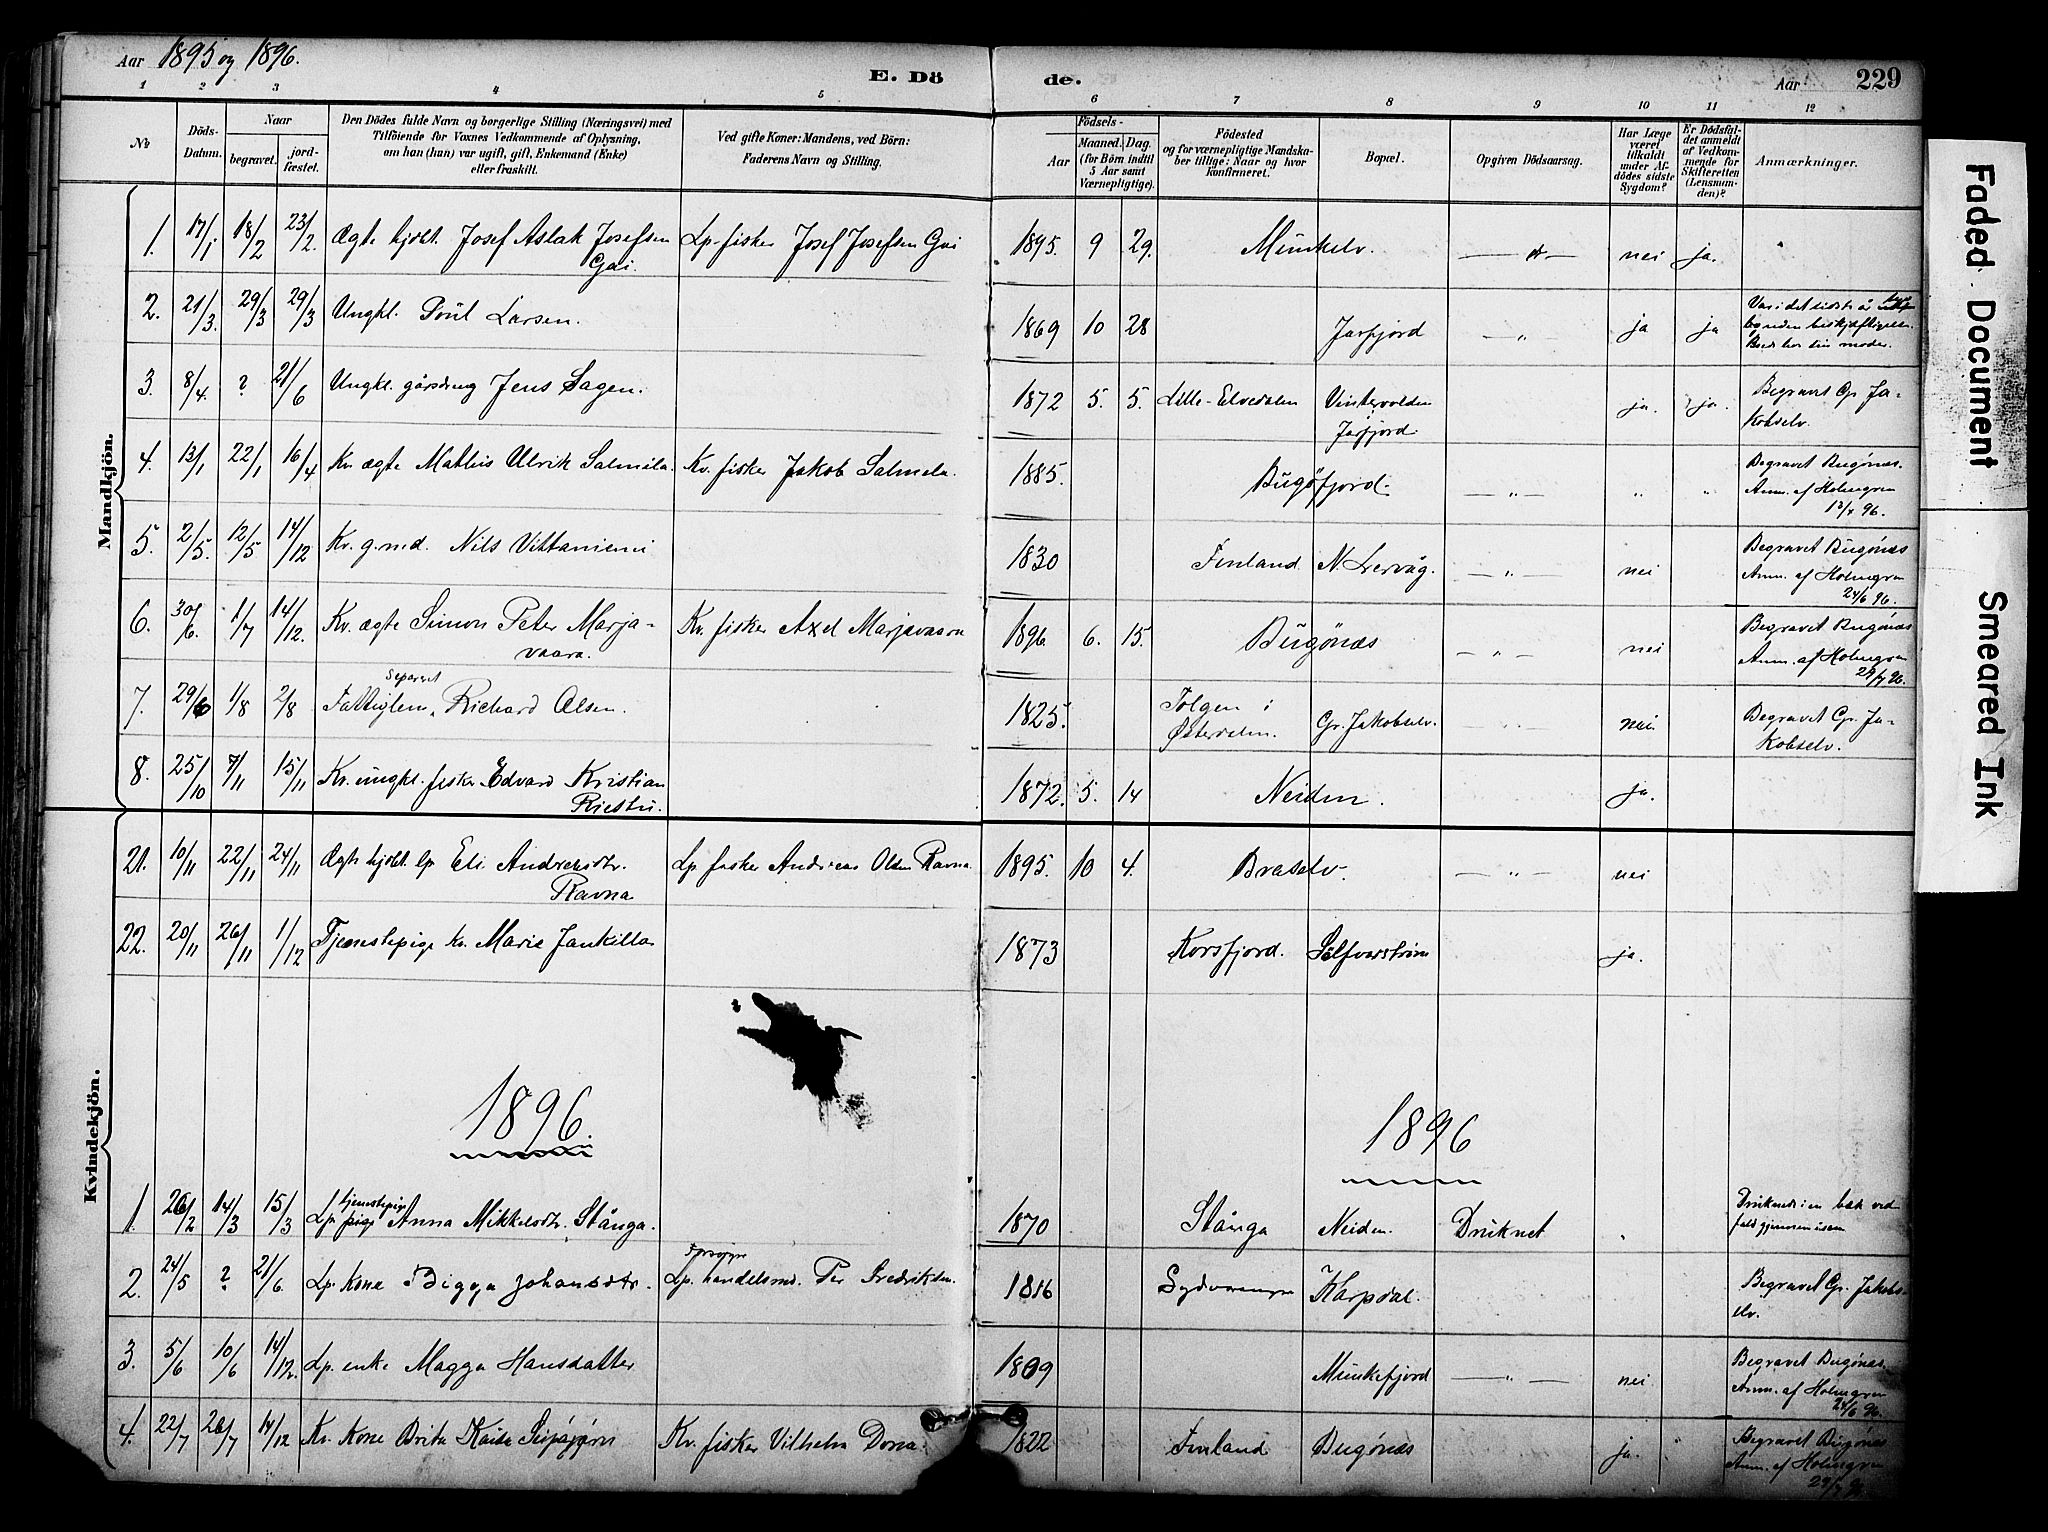 Aar 1895 og 1896.
E. Dö de.
Aar 229
1 2 3 4 5 6 7 8 9 10 11 12
No
Döds-Datum.
Naar
begravet.
jord-fæstet.
Den Dödes fulde Navn og borgerlige Stilling (Næringsvei) med
Tilföiende for Voxnes Vedkommende af Oplysning,
om han (hun) var ugift, gift, Enkemand (Enke)
eller fraskilt.
Ved gifte Koner: Mandens, ved Börn:
Faderens Navn og Stilling.
Födsels-
Aar
Maaned. Dag.
(for Börn indtil
5 Aar samt
Værnepligtige).
Födested
og for værnepligtige Mandska-
ber tillige: Naar og hvor
konfirmeret.
Bopæl.
Opgiven Dödsaarsag.
Har Læge
været
tilkaldt
under Af-
dödes sidste
Sygdom?
Er Dödsfal-
det anmeldt
af Vedkom-
mende for
Skifteretten
(Lensman-
den)?
Anmærkninger.
Mandkjön.
1. 17/1 18/2 23/2. Ægte Josef Aslak Josefsen Gai. Lp. fisker Josef Josefsen Gai 1895. 9 29. Munkelv. nei ja.
2. 21/3. 29/3 29/3 Ungkl. Poul Larsen. 1869 10 28 Jarfjord — „ — ja ja Var i det sidste år
uden beskjæftigelse.
moder.
3. 8/4. ? 21/6 Ungkl. Jens Sagen. 1872 5. 5. Lille-Elvedalen Vintervolden
Jarfjord ja. ja. Begravet Gr. Ja-
kobselv.
4. 13/1 22/1 16/4 Kv. ægte Mathis Ulrik Salmila Kv. fisker Jakob Salmela. 1885. Bugöfjord. — „ — „ „ Begravet Bugönæs.
Anm. af Holmgren
96.
5. 2/5. 12/5 14/12 Kv. g. md. Nils Vittaniemi 1830 Finland N. Leirvåg. — „ — nei Begravet Bugönæs
Anm. af Holmgren
24/6 96.
6. 30/6. 1/7 14/12. Kv. ægte Simon Peter Marja-
vaara. Kv. fisker Axel Marjavaara 1896. 6. 15. Bugönæs — „ — nei Begravet Bugönæs
Anm. af Holmgren
29/7 96.
7. 29/6 1/8 2/8 Fattiglem, separert Richard Olsen. 1825. Tolgen i
Østerdalen. Gr. Jakobselv. nei Begravet Gr. Ja-
kobselv.
8. 25/10 7/11 15/11 Kv. ungkl. fisker Edvard Kristian
Riesto. 1872. 5. 14 Neiden. ja.
Kvindekjön.
21. 10/11 22/11 24/11 Ægte lp. Eli Andreasdtr.
Ravna Lp. fisker Andreas Olsen Ravna. 1895. 10 4. Braselv. — „ — nei
22. 20/11 26/11 1/12 Tjenestepige kv. Marie Jankilla 1873 Korsfjord. ja.
1896.
1896
1. 26/2 14/3 15/3 Lp. tjenestepige pige Anna Mikkelsdtr. Stånga. 1870 Stånga Neiden. Druknet „ Druknede i en bæk ved
2. 24/5 ? 21/6. Lp. kone Bigga Johansdtr. Lp. handelsmd. Per Fredriksen. 1816 Sydvaranger Karpdal. Begravet Gr. Jakobs-
elv.
3. 5/6 10/6 14/12. Lp. enke Magga Hansdatter 1809 Munkefjord — „ — nei Begravet Bugönæs.
Anm. af Holmgren
24/6 96.
4. 22/7 26/7 14/12 Kv. kone Brita Kaisa Kv. fisker Vilhelm 1822 Finland Bugönæs ja. Begravet Bugönæs
Anm. af Holmgren
29/7 96
Faded Document
Smeared Ink